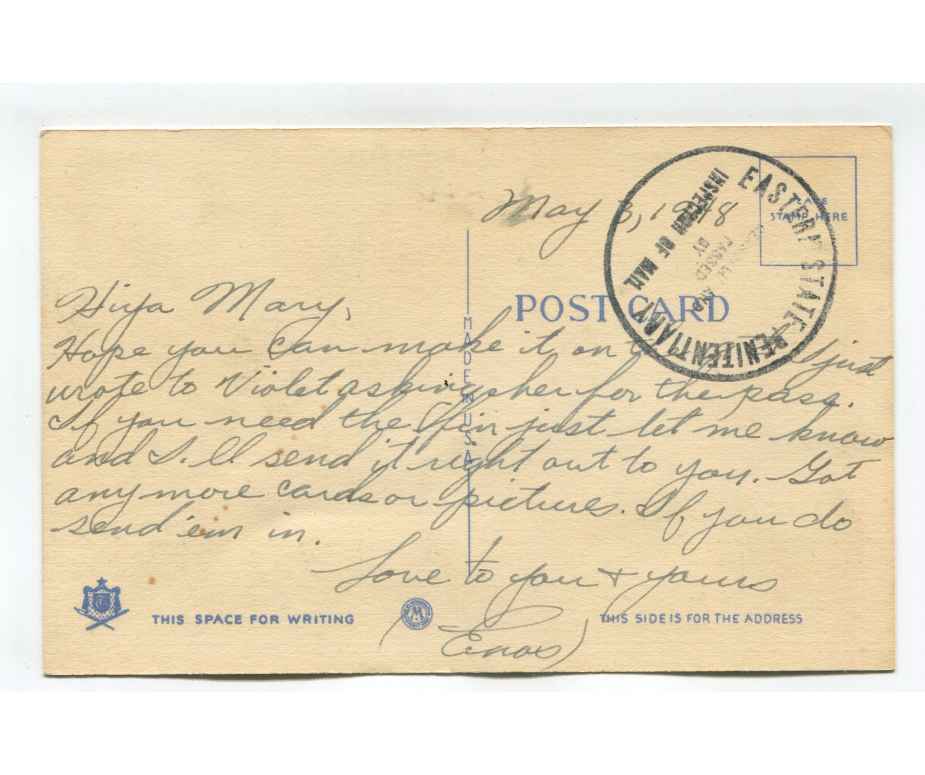 May 3, 1948
EASTERN STATE PENITENTIARY
INSPECTOR OF MAIL
PASSED
BY
PLACE
STAMP HERE
POST CARD
MADE IN USA
Hiya Mary,
Hope you can make it on I just
wrote to Violet asking her for the pass.
If you need the fin just let me know
and I'll send it right out to you. Got
any more cards or pictures. If you do
send 'em in.
Love to you + yours
(Enos)
THIS SPACE FOR WRITING
THIS SIDE IS FOR THE ADDRESS